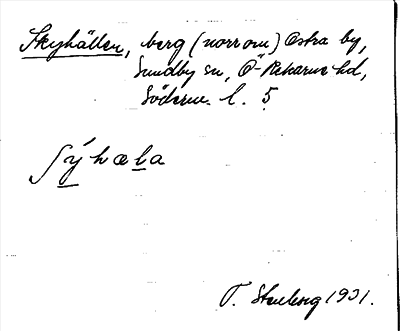 Skyhällen, berg (norr om) Östra by,
Sundby sn, Ö-Rekarne hd,
Söderm. l. 5
ʃýhæla
T. Stenberg 1931.